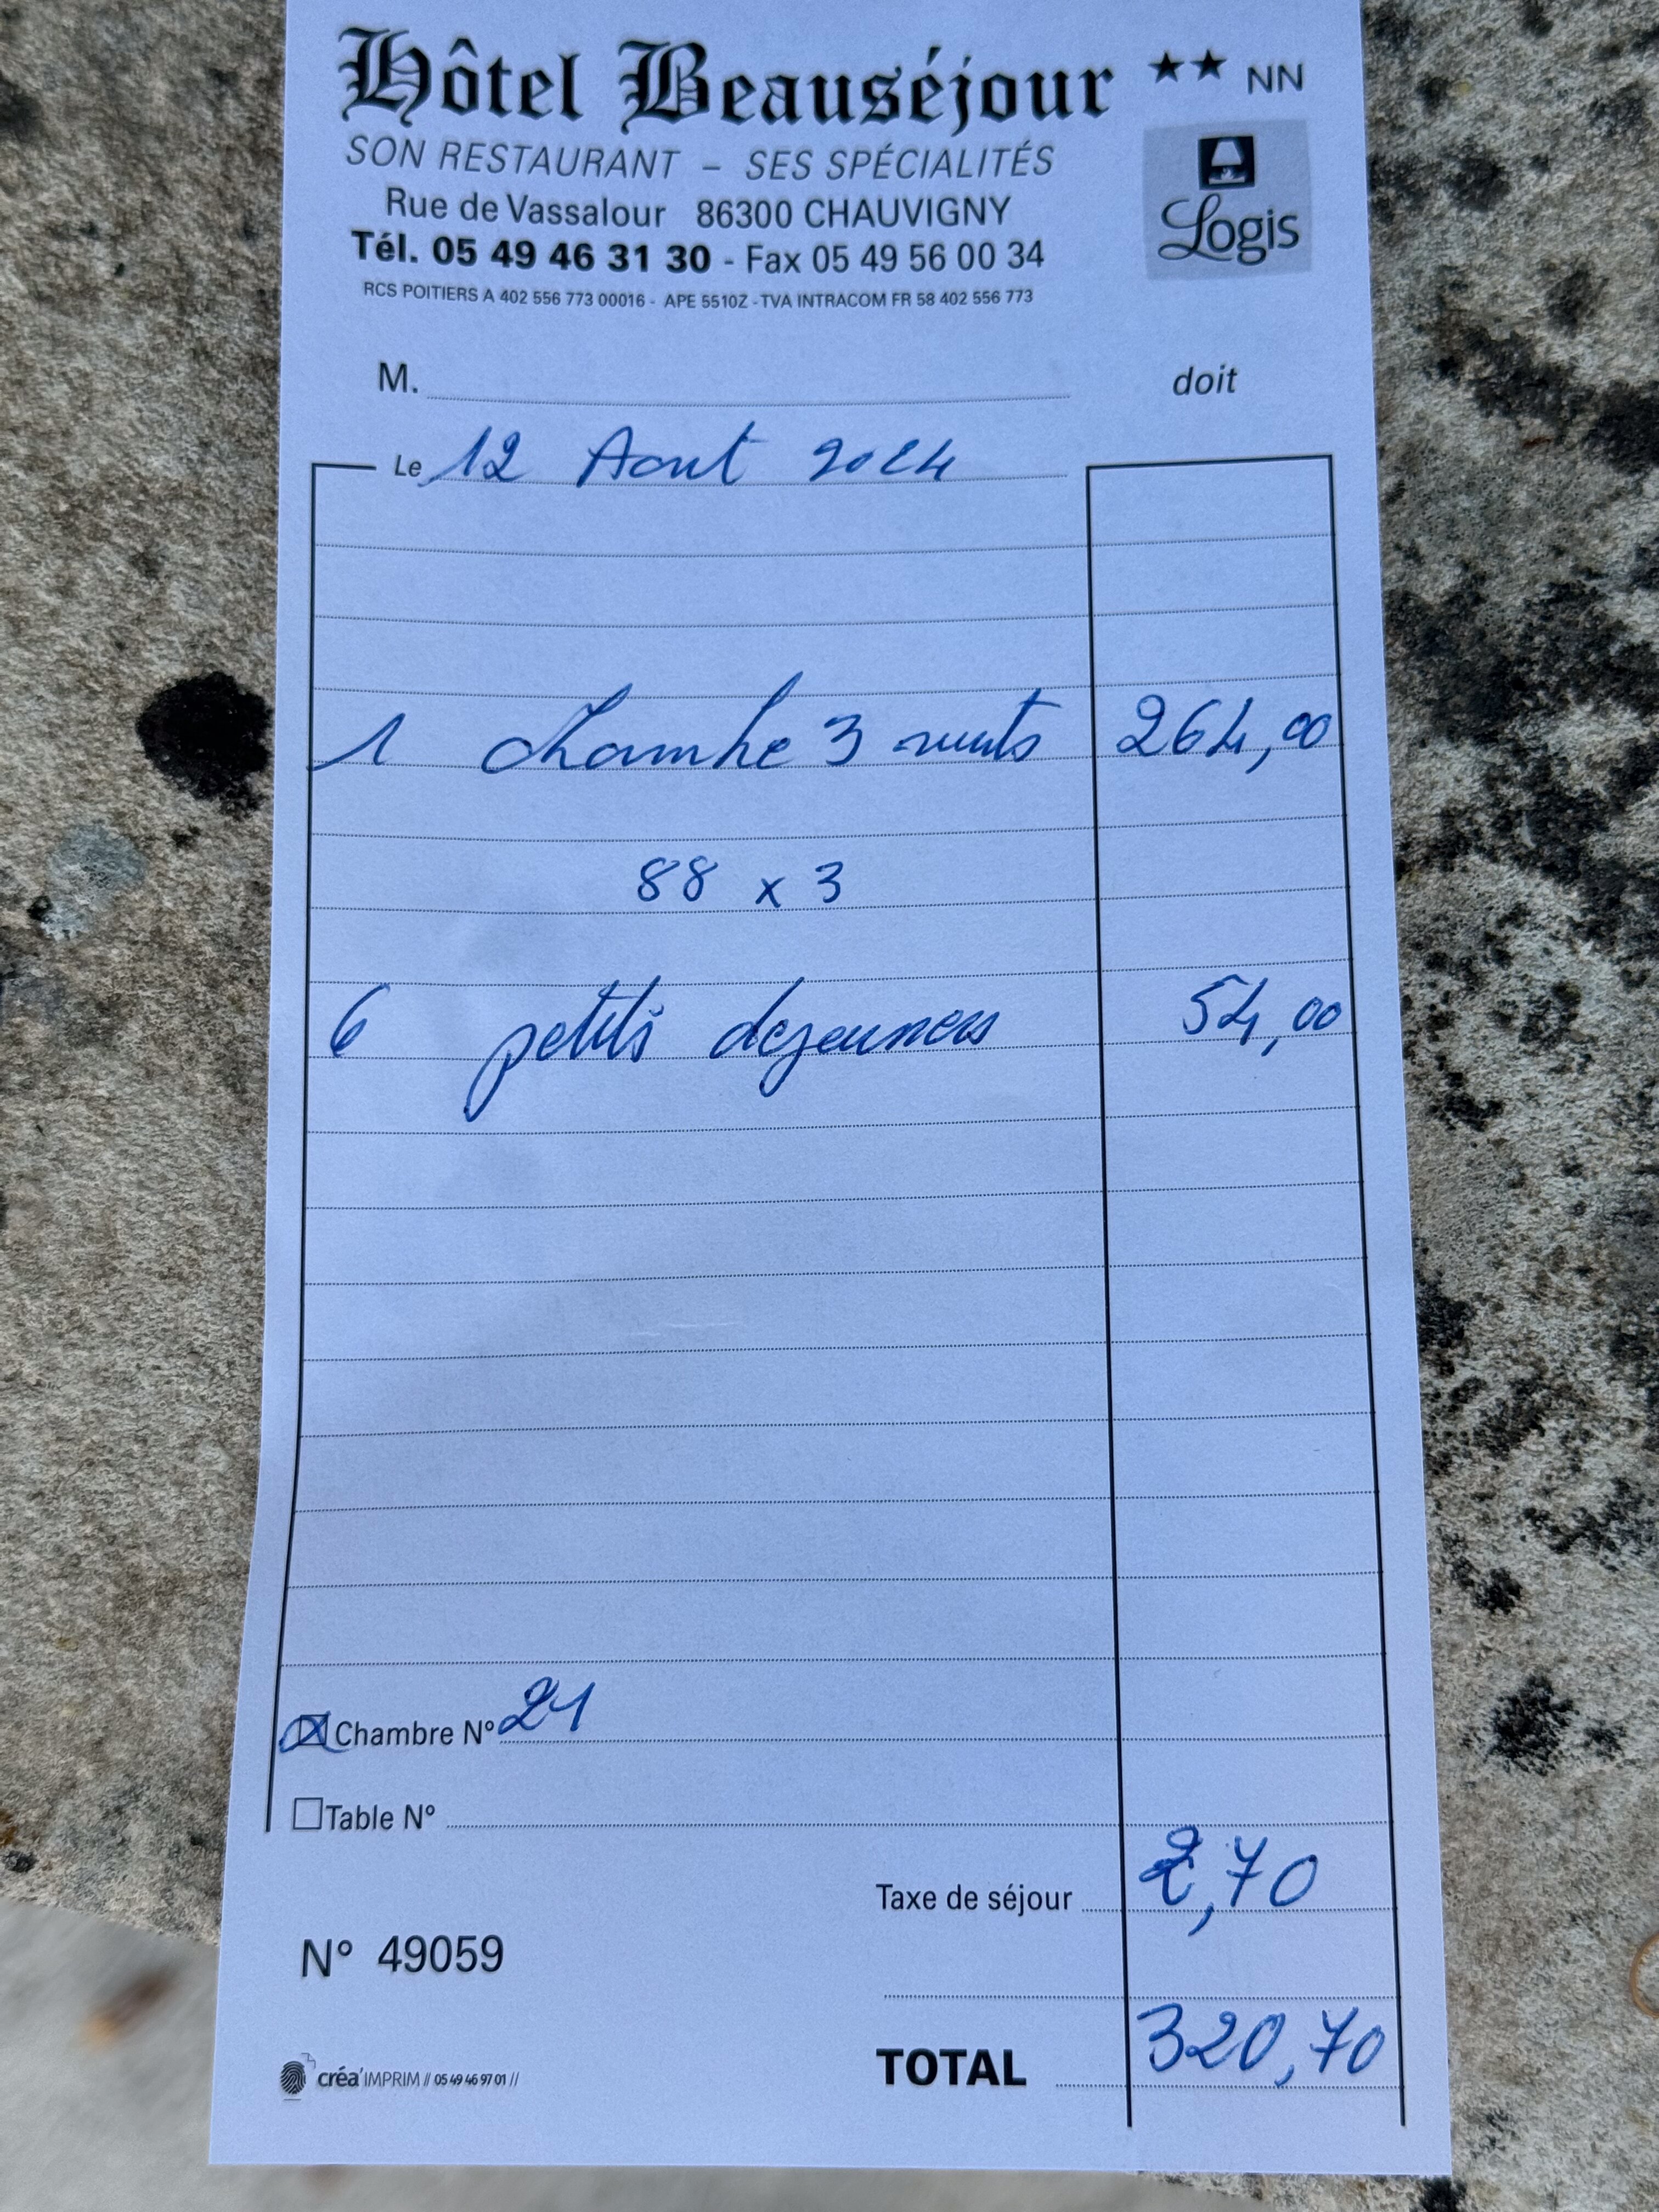 Hôtel Beauséjour ★★ NN
SON RESTAURANT – SES SPÉCIALITÉS
Logis
Rue de Vassalour 86300 CHAUVIGNY
Tél. 05 49 46 31 30 - Fax 05 49 56 00 34
RCS POITIERS A 402 556 773 00016 - APE 5510Z - TVA INTRACOM FR 58 402 556 773
M. doit
Le 12 Aout 2024
1 chambre 3 nuits 264,00
88 x 3
6 petits dejeuners 54,00
Chambre N° 21
Table N°
Taxe de séjour 2,70
N° 49059
TOTAL 320,70
créa'IMPRIM // 05 49 46 97 01 //